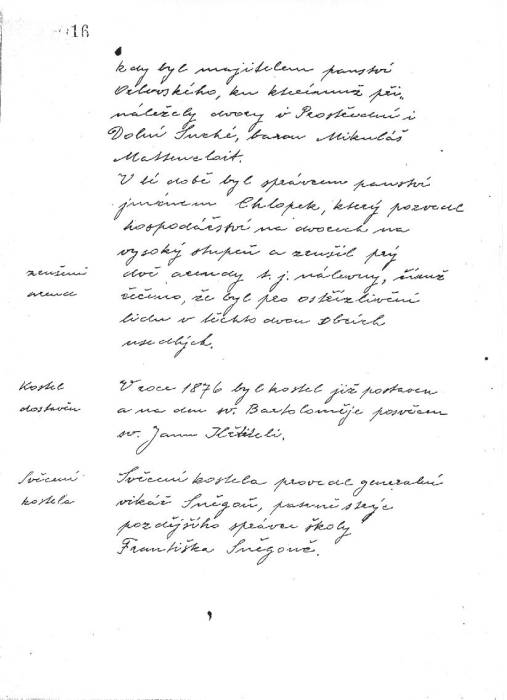 16
kdy byl majitelem panství
Orlovského, ku kterémuž při-
náležely dvory v Prostřední i
Dolní Suché, baron Mikuláš
Mattencloit.
V té době byl správcem panství
jménem Chlopek, který pozvedl
hospodářství na dvorech na
vysoký stupeň a zrušil prý
zrušení
arend
dvě arendy t. j. nálevny, čímž
řečeno, že byl pro ostřízlivění
lidu v těchto dvou obcích
usedlých.
Kostel
dostavěn
V roce 1876 byl kostel již postaven
a na den sv. Bartoloměje posvěcen
sv. Janu Křtiteli.
Svěcení
kostela
Svěcení kostela provedl generalní
vikář Sněgoň, patrně strýc
pozdějšího správce školy
Františka Sněgoně.